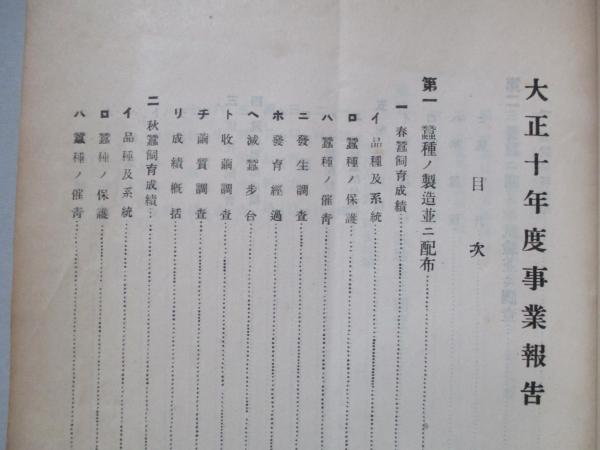 大正十年度事業報告
目次
第一 蠶種ノ製造並ニ配布
一 春蠶飼育成績
イ 品種及系統
ロ 蠶種ノ保護
ハ 蠶種ノ催靑
ニ 發生調査
ホ 發育經過
ヘ 減蠶步合
ト 收繭調査
チ 繭質調査
リ 成績槪括
二 秋蠶飼育成績
イ 品種及系統
ロ 蠶種ノ保護
ハ 蠶種ノ催靑